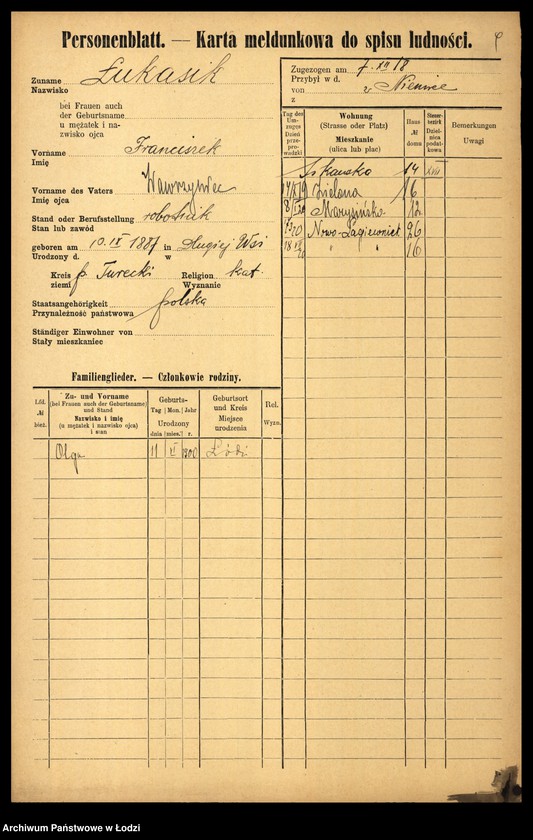 Personenblatt. — Karta meldunkowa do spisu ludności.
Zuname
Nazwisko
Łukasik
bei Frauen auch
der Geburtsname
u mężatek i na-
zwisko ojca
Vorname
Imię
Franciszek
Vorname des Vaters
Imię ojca
Wawrzyniec
Stand oder Berufsstellung
Stan lub zawód
robotnik
geboren am 10. IX 1887 in Długiej Wsi
Urodzony d. w
Kreis p. Turecki Religion kat.
ziemi Wyznanie
Staatsangehörigkeit
Przynależność państwowa
polska
Ständiger Einwohner von
Stały mieszkaniec
Zugezogen am 7. XII 18
Przybył w d.
von z Niemiec
z
Tag des
Um-
zuges
Dzień
prze-
prowadzki
Wohnung
(Strasse oder Platz)
Mieszkanie
(ulica lub plac)
Haus
№
domu
Steuer-
bezirk
Dziel-
nica
podat-
kowa
Bemerkungen
Uwagi
14 XVIII
Zielona 16
Marysińska 12
Nowo-Łagiewnick 26
" " 16
Familienglieder. — Członkowie rodziny.
Lfd.
№
bież.
Zu- und Vorname
(bei Frauen auch der Geburtsname)
und Stand
Nazwisko i imię
(u mężatek i nazwisko ojca)
i stan
Geburts-
Tag Mon. Jahr
Urodzony
dnia mies. r.
Geburtsort
und Kreis
Miejsce
urodzenia
Rel.
Wyzn.
Olga 11 XI 1900 Łódź
Archiwum Państwowe w Łodzi